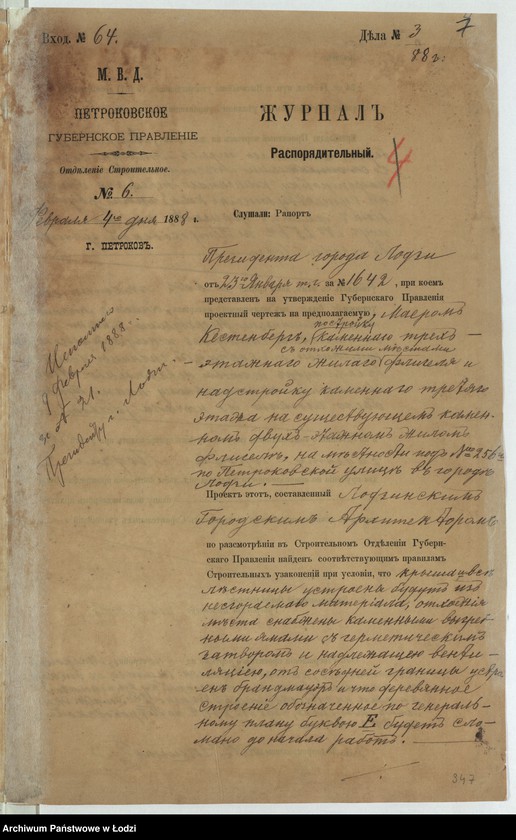 Вход. № 64.
Дѣла № 3
7
88 г:
М. В. Д.
ПЕТРОКОВСКОЕ
ГУБЕРНСКОЕ ПРАВЛЕНІЕ
Отдѣленіе Строительное.
№ 6.
Февраля 4го дня 1888 г.
Г. ПЕТРОКОВЪ.
ЖУРНАЛЪ
Распорядительный.
4
Слушали: Рапортъ
Президента города Лодзи
отъ 23го Января т. г. за № 1642, при коемъ
представленъ на утвержденіе Губернскаго Правленія
проектный чертежъ на предполагаемую, Маеромъ
Кестенбергъ, постройку каменнаго трехъ-
этажнаго жилаго съ отхожими мѣстами флигеля и
надстройку каменнаго третьяго
этажа на существующемъ камен-
номъ двухъ-этажномъ жиломъ
флигелѣ, на мѣстности подъ № 256
по Петроковской улицѣ въ городѣ
Лодзи. —
Проектъ этотъ, составленный Лодзинскимъ
Городскимъ Архитекторомъ
по разсмотрѣніи въ Строительномъ Отдѣленіи Губерн-
скаго Правленія найденъ соотвѣтствующимъ правиламъ
Строительныхъ узаконеній при условіи, что крыша и всѣ
лѣстницы устроены будутъ изъ
несгораемаго матеріала, отхожія
мѣста снабжены каменными выгреб-
ными ямами съ герметическимъ
затворомъ и надлежащею венти-
ляціею, отъ сосѣдней границы устро
енъ брандмауэръ и что деревянное
строеніе обозначенное по генераль-
ному плану буквою Е будетъ сло-
мано до начала работъ. —
Исполнено
9 Февраля 1888.
за № 21.
Президенту г. Лодзи.
347
Archiwum Państwowe w Łodzi